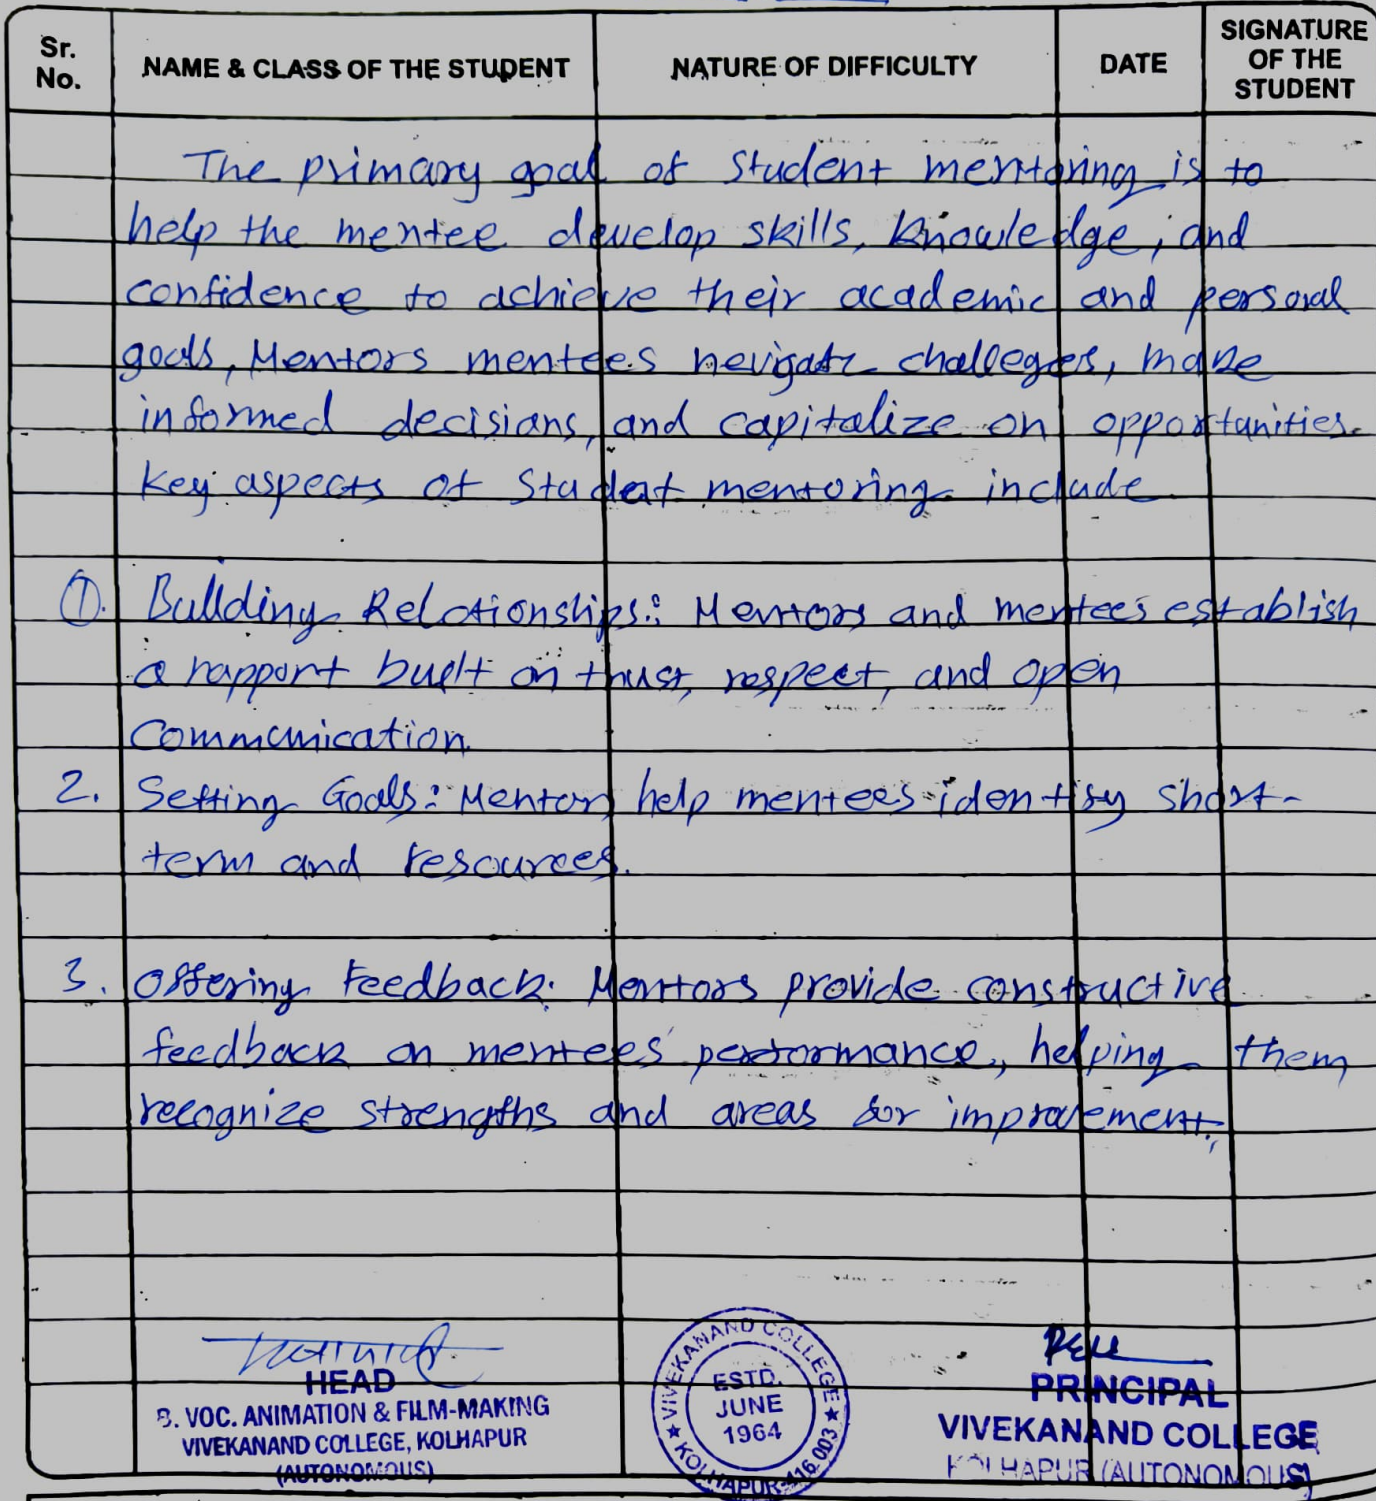 Sr. No. NAME & CLASS OF THE STUDENT NATURE OF DIFFICULTY DATE SIGNATURE OF THE STUDENT
The primary goal of student mentoring is to
help the mentee develop skills, knowledge, and
confidence to achieve their academic and personal
goals, Mentors mentees nevigate challeges, make
informed decisians, and capitalize on opportanities.
Key aspects of Student mentoring include
1. Building Relationships: Mentors and mentees establish
a rapport built on trust, respect, and open
Communication.
2. Setting Goals: Mentors help mentees identify short-
term and resources.
3. Offering Feedback. Mentors provide constructive
feedback on mentees' performance, helping them
recognize strengths and areas for improvement.
HEAD
B. VOC. ANIMATION & FILM-MAKING
VIVEKANAND COLLEGE, KOLHAPUR
(AUTONOMOUS)
VIVEKANAND COLLEGE
ESTD.
JUNE
1964
KOLHAPUR-416 003
PRINCIPAL
VIVEKANAND COLLEGE
KOLHAPUR (AUTONOMOUS)